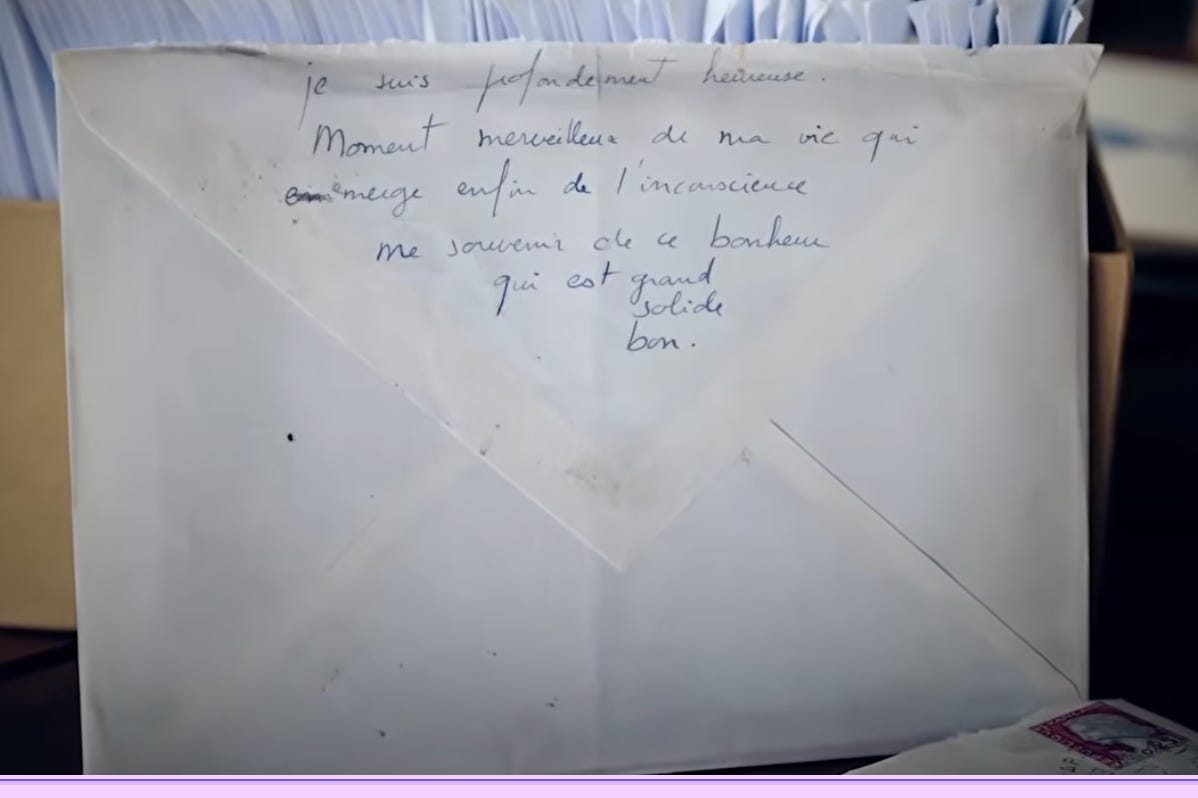 je suis profondement heureuse.
Moment merveilleux de ma vie qui
emerge enfin de l'inconscience
me souvenir de ce bonheur
qui est grand
solide
bon.